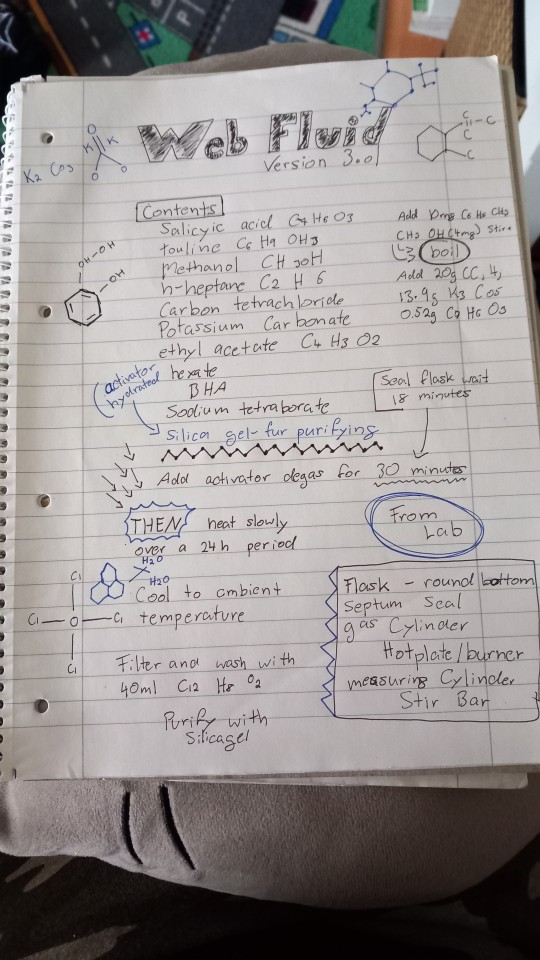 Web Fluid
Version 3.0
K2 Co3
O
K K
O O
C
C
C
C
Contents
Salicyic acid C7 H6 O3
touline C6 H9 OH3
Methanol CH 3OH
n-heptane C2 H 6
Carbon tetrachloride
Potassium Carbonate
ethyl acetate C4 H3 O2
hexate
BHA
Sodium tetraborate
Silica gel-fur purifying
OH-OH
OH
activator
hydrated
Add 10mg C6 H6 CH2
CH2 OH (4mg) Stir
boil
Add 20g CC, 4,
13.9g K3 Co3
0.52g C7 H6 O3
Seal flask wait
18 minutes
Add activator degas for 30 minutes
THEN heat slowly
over a 24h period
From
Lab
H2O
H2O
Cool to ambient
temperature
Cl
Cl O Cl
Cl
Filter and wash with
40ml C12 H8 O2
Purify with
Silicagel
Flask - round bottom
Septum Seal
gas Cylinder
Hotplate/burner
measuring Cylinder
Stir Bar